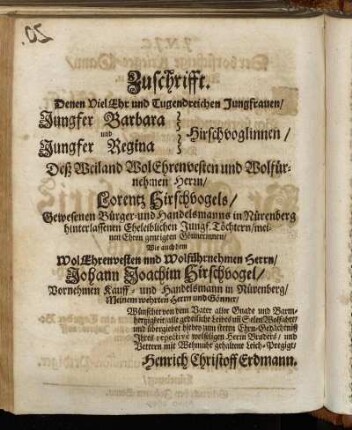 20.
Zuschrifft.
Denen Viel Ehr und Tugendreichen Jungfrauen/
Jungfer Barbara
und
Hirschvoglinnen/
Jungfer Regina
Deß Weiland WolEhrenvesten und Wolfür-
nehmen Herrn/
Lorentz Hirschvogels/
Gewesenen Bürger- und Handelsmanns in Nürenberg
hinterlassenen Eheleiblichen Jungf. Töchtern/ mei-
nen Ehren geneigten Gönnerinnen/
Wie auch dem
WolEhrenvesten und Wolführnehmen Herrn/
Johann Joachim Hirschvogel/
Vornehmen Kauff- und Handelsmann in Nürenberg/
Meinem wehrten Herrn und Gönner/
Wünschet von dem Vater aller Gnade und Barm-
hertzigkeit alle gedeiliche Leibes uñ Selen Wolfahrt/
und übergiebet hiebey zum steten Ehren-Gedächtniß
Ihres respectivè wolseligen Herrn Bruders/ und
Vettern mit Wehmuht gehaltene Leich-Predigt/
Henrich Christoff Erdmann.